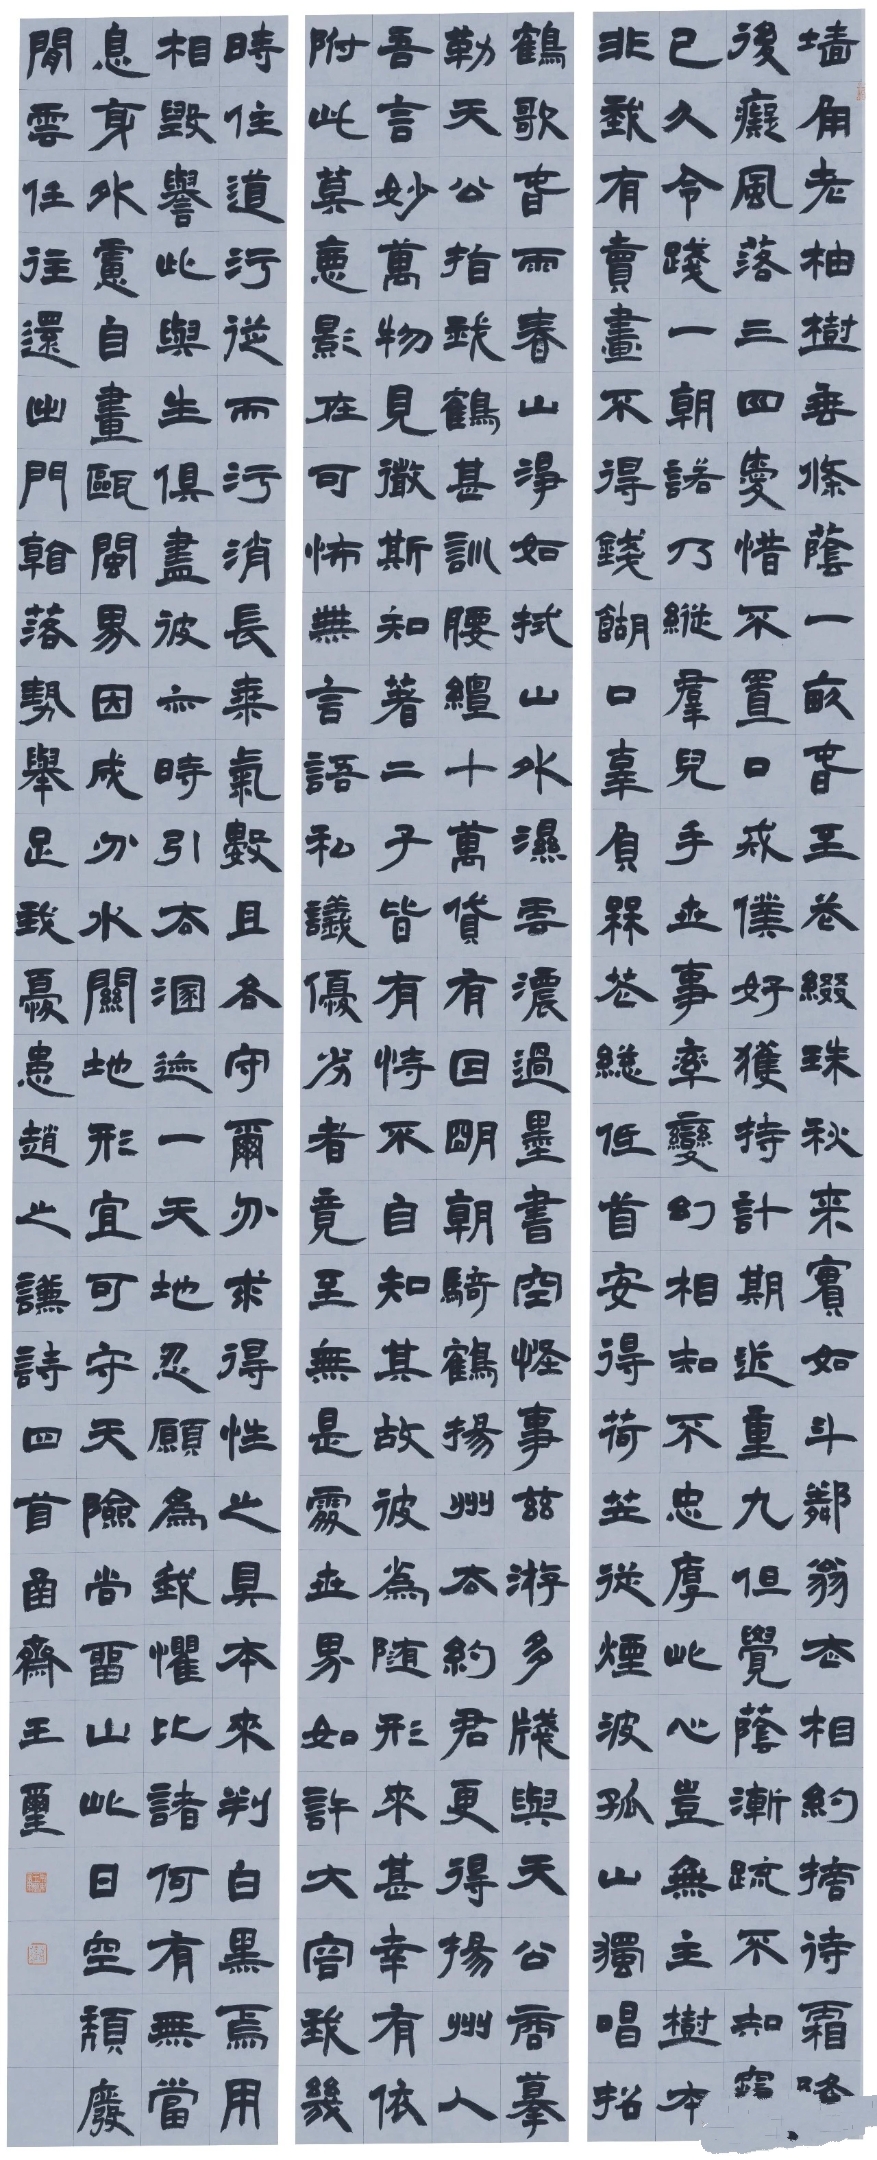 墻角老柚樹垂條蔭一畝春至花綴珠秋来實如斗鄰翁去相約摘待霜
後癡風落三四愛惜不置口戒僕好獲持計期近重九但覺蔭漸疏不知竊
已久令踐一朝諾乃縱羣兒手世事率變幻相知不忠厚此心豈無主樹本
非我有賣畫不得錢餬口辜負槑花總低首安得荷芷從煙波孤山獨唱招
鶴歌春雨春山淨如拭山外濕雲濃過墨書空怪事兹游多牋與天公商摹
勒天公指我鶴甚訓腰纏十萬貸有囙明朝騎鶴揚州去約君更得揚州人
吾言妙萬物見徵斯知著二子皆有恃不自知其故彼為随形來甚幸有依
附此莫恵影在可怖無言語私議優劣者竟至無是處世界如許大容我幾
時住道污從而污消長乘氣數且各守爾分求得性之具本來判白黑焉用
相毀譽此與生俱盡彼亦時引去溷迹一天地忍願為我懼比諸何有無當
息身外慮自畫甌閩界因成分水關地形宜可守天險尚留山此日空頽廢
閒雲任往還出門翰落勢舉足我憂患趙之謙詩四首甬齋王璽